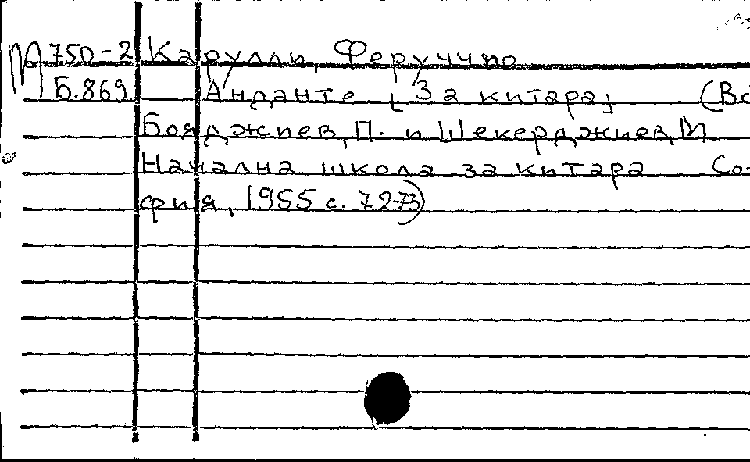 М 75D-2 Карулли, Феруччио
Б.869 Анданте [За китара] (Во
Бояджиев, П. и Шекерджиев, М.
Начална школа за китара Со-
фия, 1955 с. 72-73)